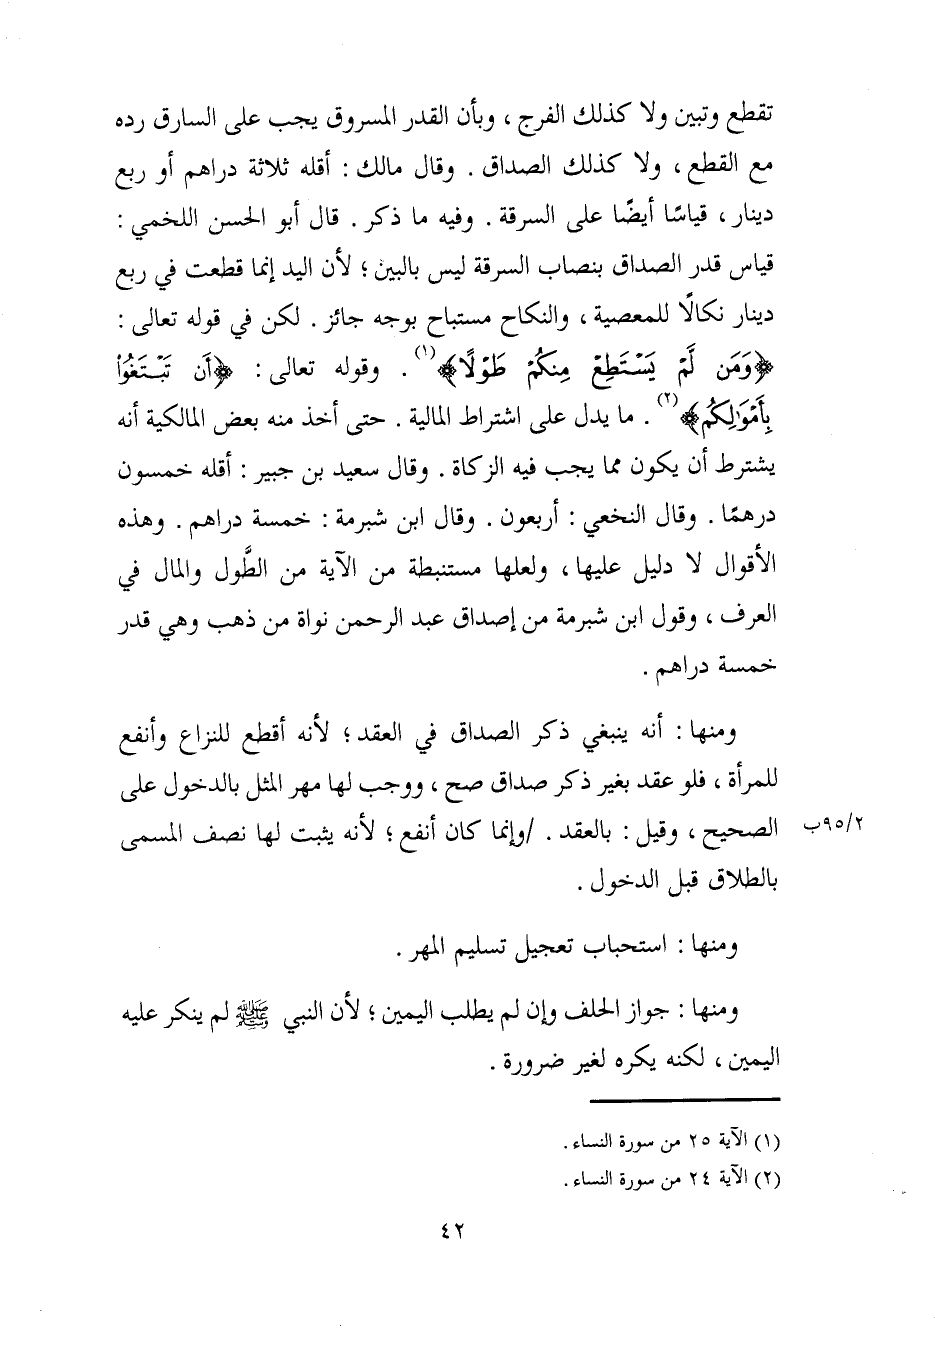 تقطع وتبين ولا كذلك الفرج ، وبأن القدر المسروق يجب على السارق رده
مع القطع ، ولا كذلك الصداق . وقال مالك : أقله ثلاثة دراهم أو ربع
دينار ، قياسًا أيضًا على السرقة . وفيه ما ذكر . قال أبو الحسن اللخمي :
قياس قدر الصداق بنصاب السرقة ليس بالبين ؛ لأن اليد إنما قطعت في ربع
دينار نكالًا للمعصية ، والنكاح مستباح بوجه جائز . لكن في قوله تعالى :
﴿وَمَن لَّمْ يَسْتَطِعْ مِنكُمْ طَوْلًا﴾(١) . وقوله تعالى : ﴿أَن تَبْتَغُوا
بِأَمْوَٰلِكُم﴾(٢) . ما يدل على اشتراط المالية . حتى أخذ منه بعض المالكية أنه
يشترط أن يكون مما يجب فيه الزكاة . وقال سعيد بن جبير : أقله خمسون
درهمًا . وقال النخعي : أربعون . وقال ابن شبرمة : خمسة دراهم . وهذه
الأقوال لا دليل عليها ، ولعلها مستنبطة من الآية من الطَّول والمال في
العرف ، وقول ابن شبرمة من إصداق عبد الرحمن نواة من ذهب وهي قدر
خمسة دراهم .
ومنها : أنه ينبغي ذكر الصداق في العقد ؛ لأنه أقطع للنزاع وأنفع
للمرأة ، فلو عقد بغير ذكر صداق صح ، ووجب لها مهر المثل بالدخول على
الصحيح ، وقيل : بالعقد . /وإنما كان أنفع ؛ لأنه يثبت لها نصف المسمى
٩٥/٢ب
بالطلاق قبل الدخول .
ومنها : استحباب تعجيل تسليم المهر .
ومنها : جواز الحلف وإن لم يطلب اليمين ؛ لأن النبي ﷺ لم ينكر عليه
اليمين ، لكنه يكره لغير ضرورة .
(١) الآية ٢٥ من سورة النساء .
(٢) الآية ٢٤ من سورة النساء .
٤٢